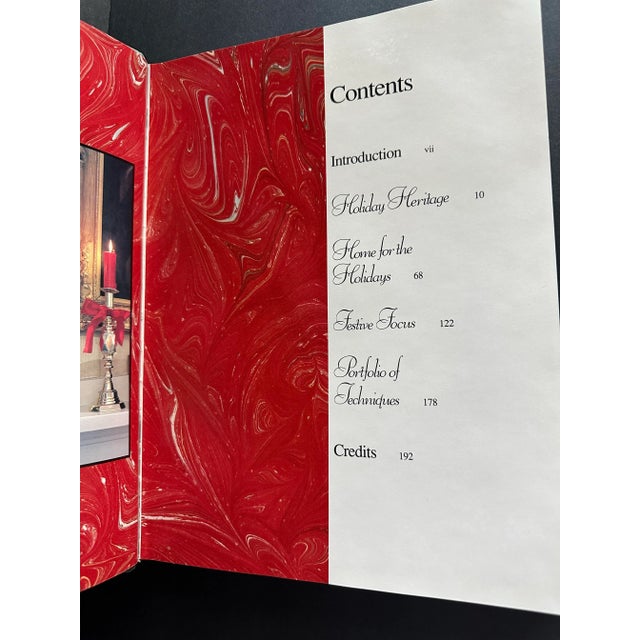 Contents
Introduction vii
Holiday Heritage 10
Home for the
Holidays 68
Festive Focus 122
Portfolio of
Techniques 178
Credits 192